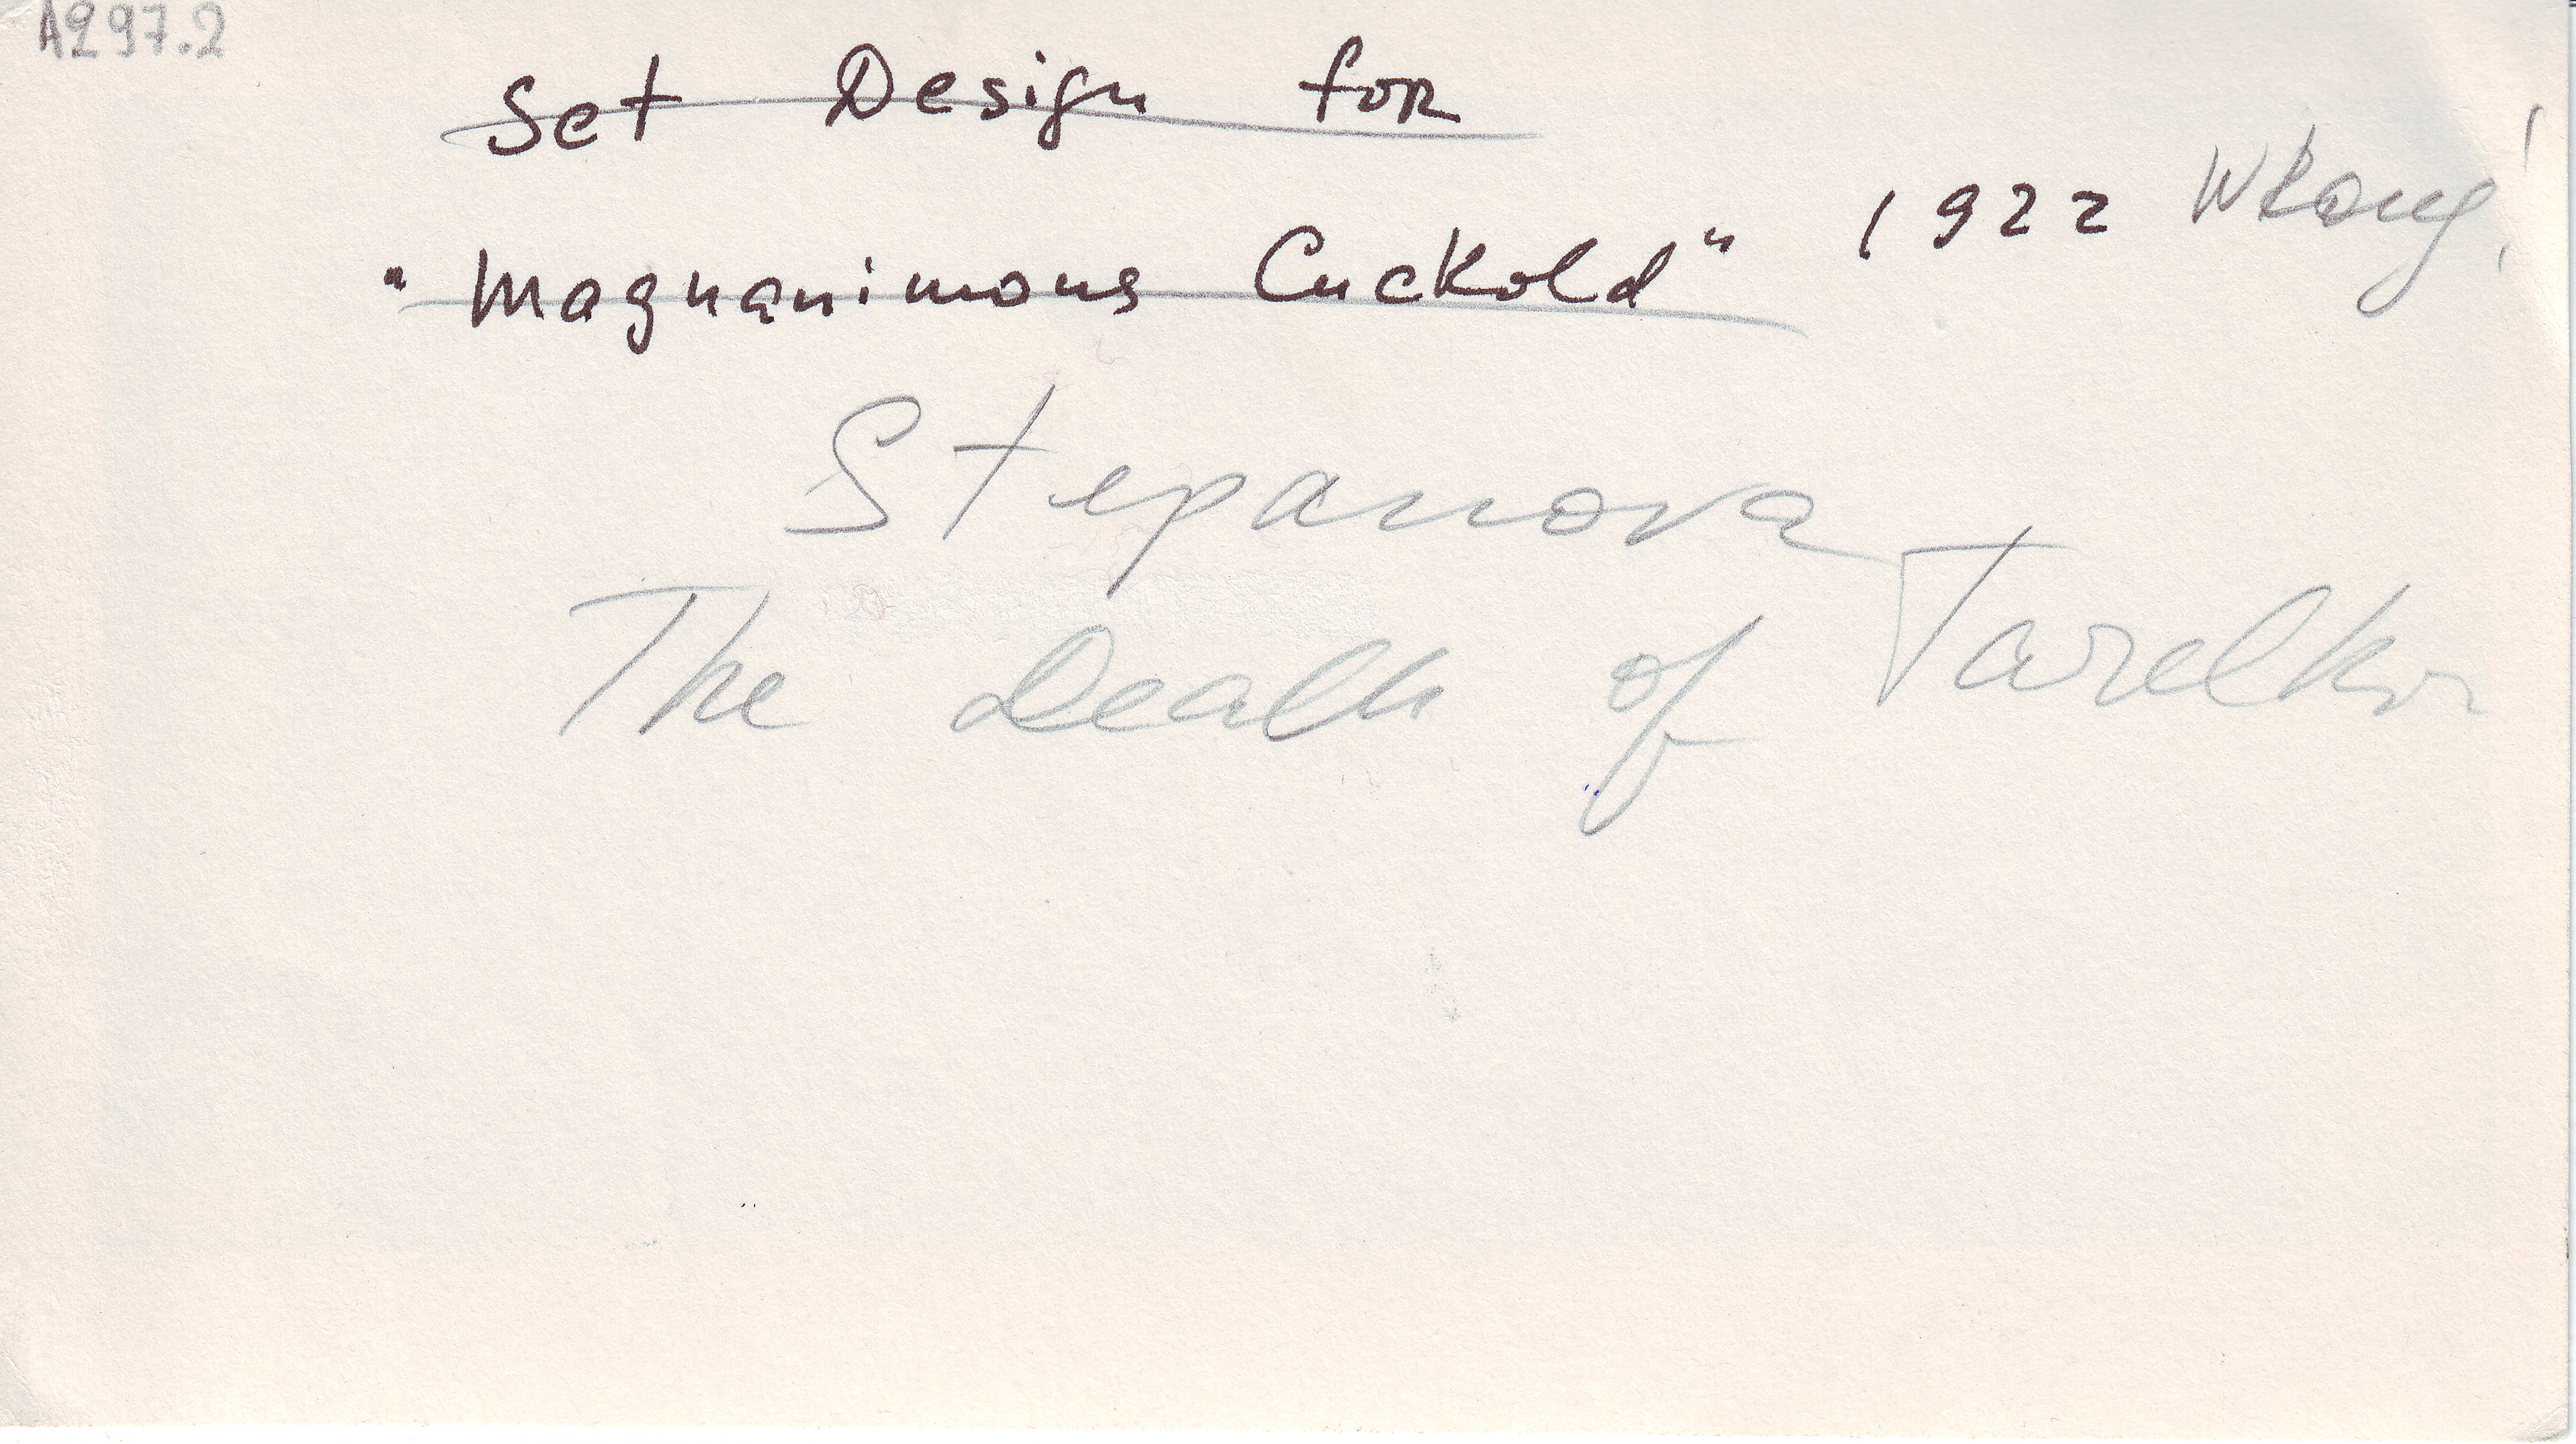 A297.2
Set Design for
"Magnanimous Cuckold" 1922 Wrong!
Stepanova
The Death of Tarelkin